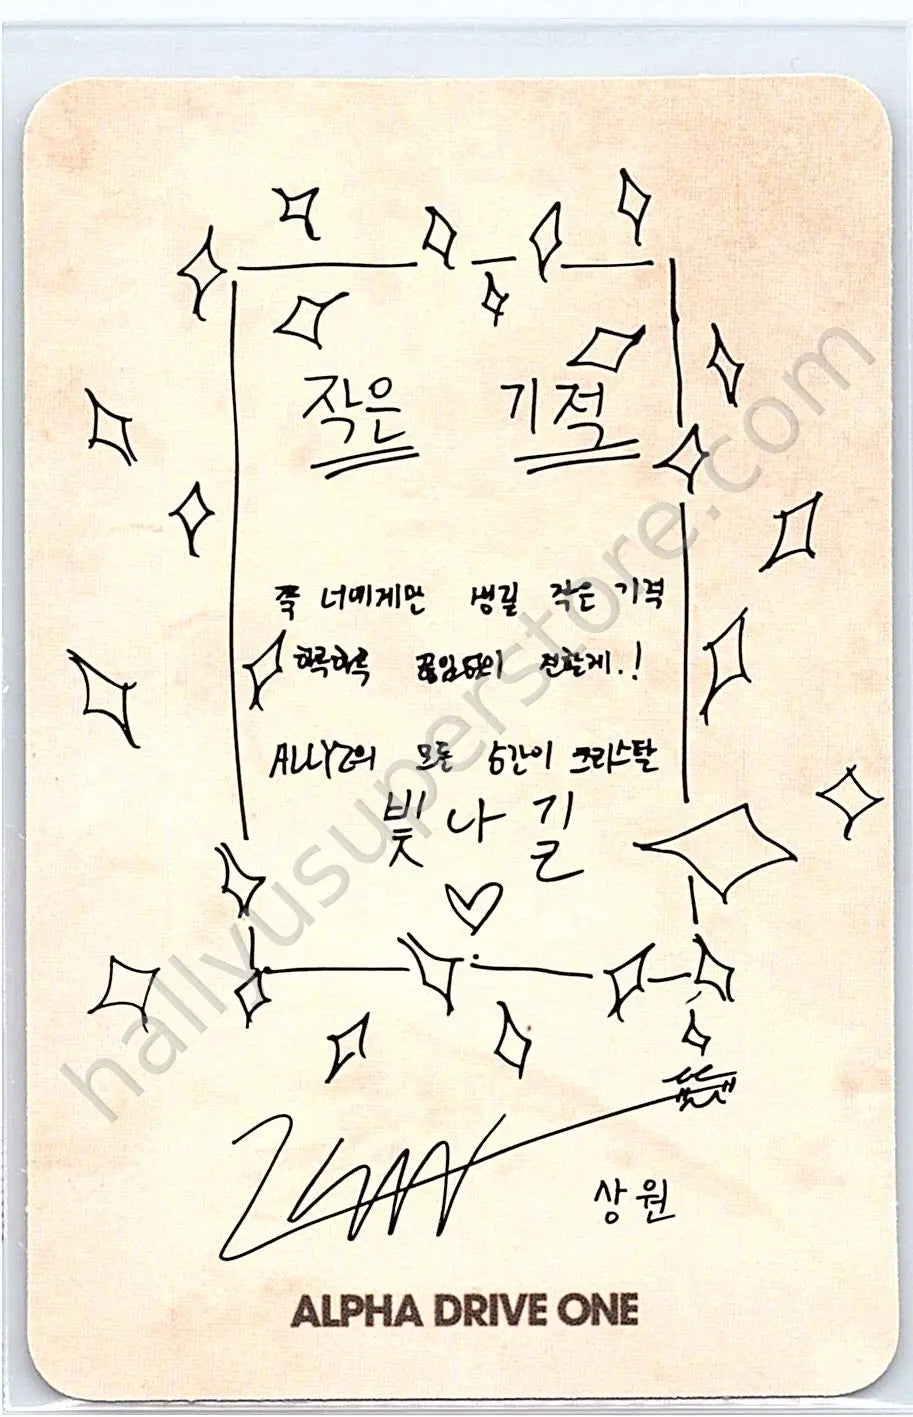 작은 기적
쭉 너에게만 생길 작은 기적
하루하루 끊임없이 전할게.!
ALLYZ의 모든 순간이 크리스탈
빛나길
상원
ALPHA DRIVE ONE
hallyusuperstore.com